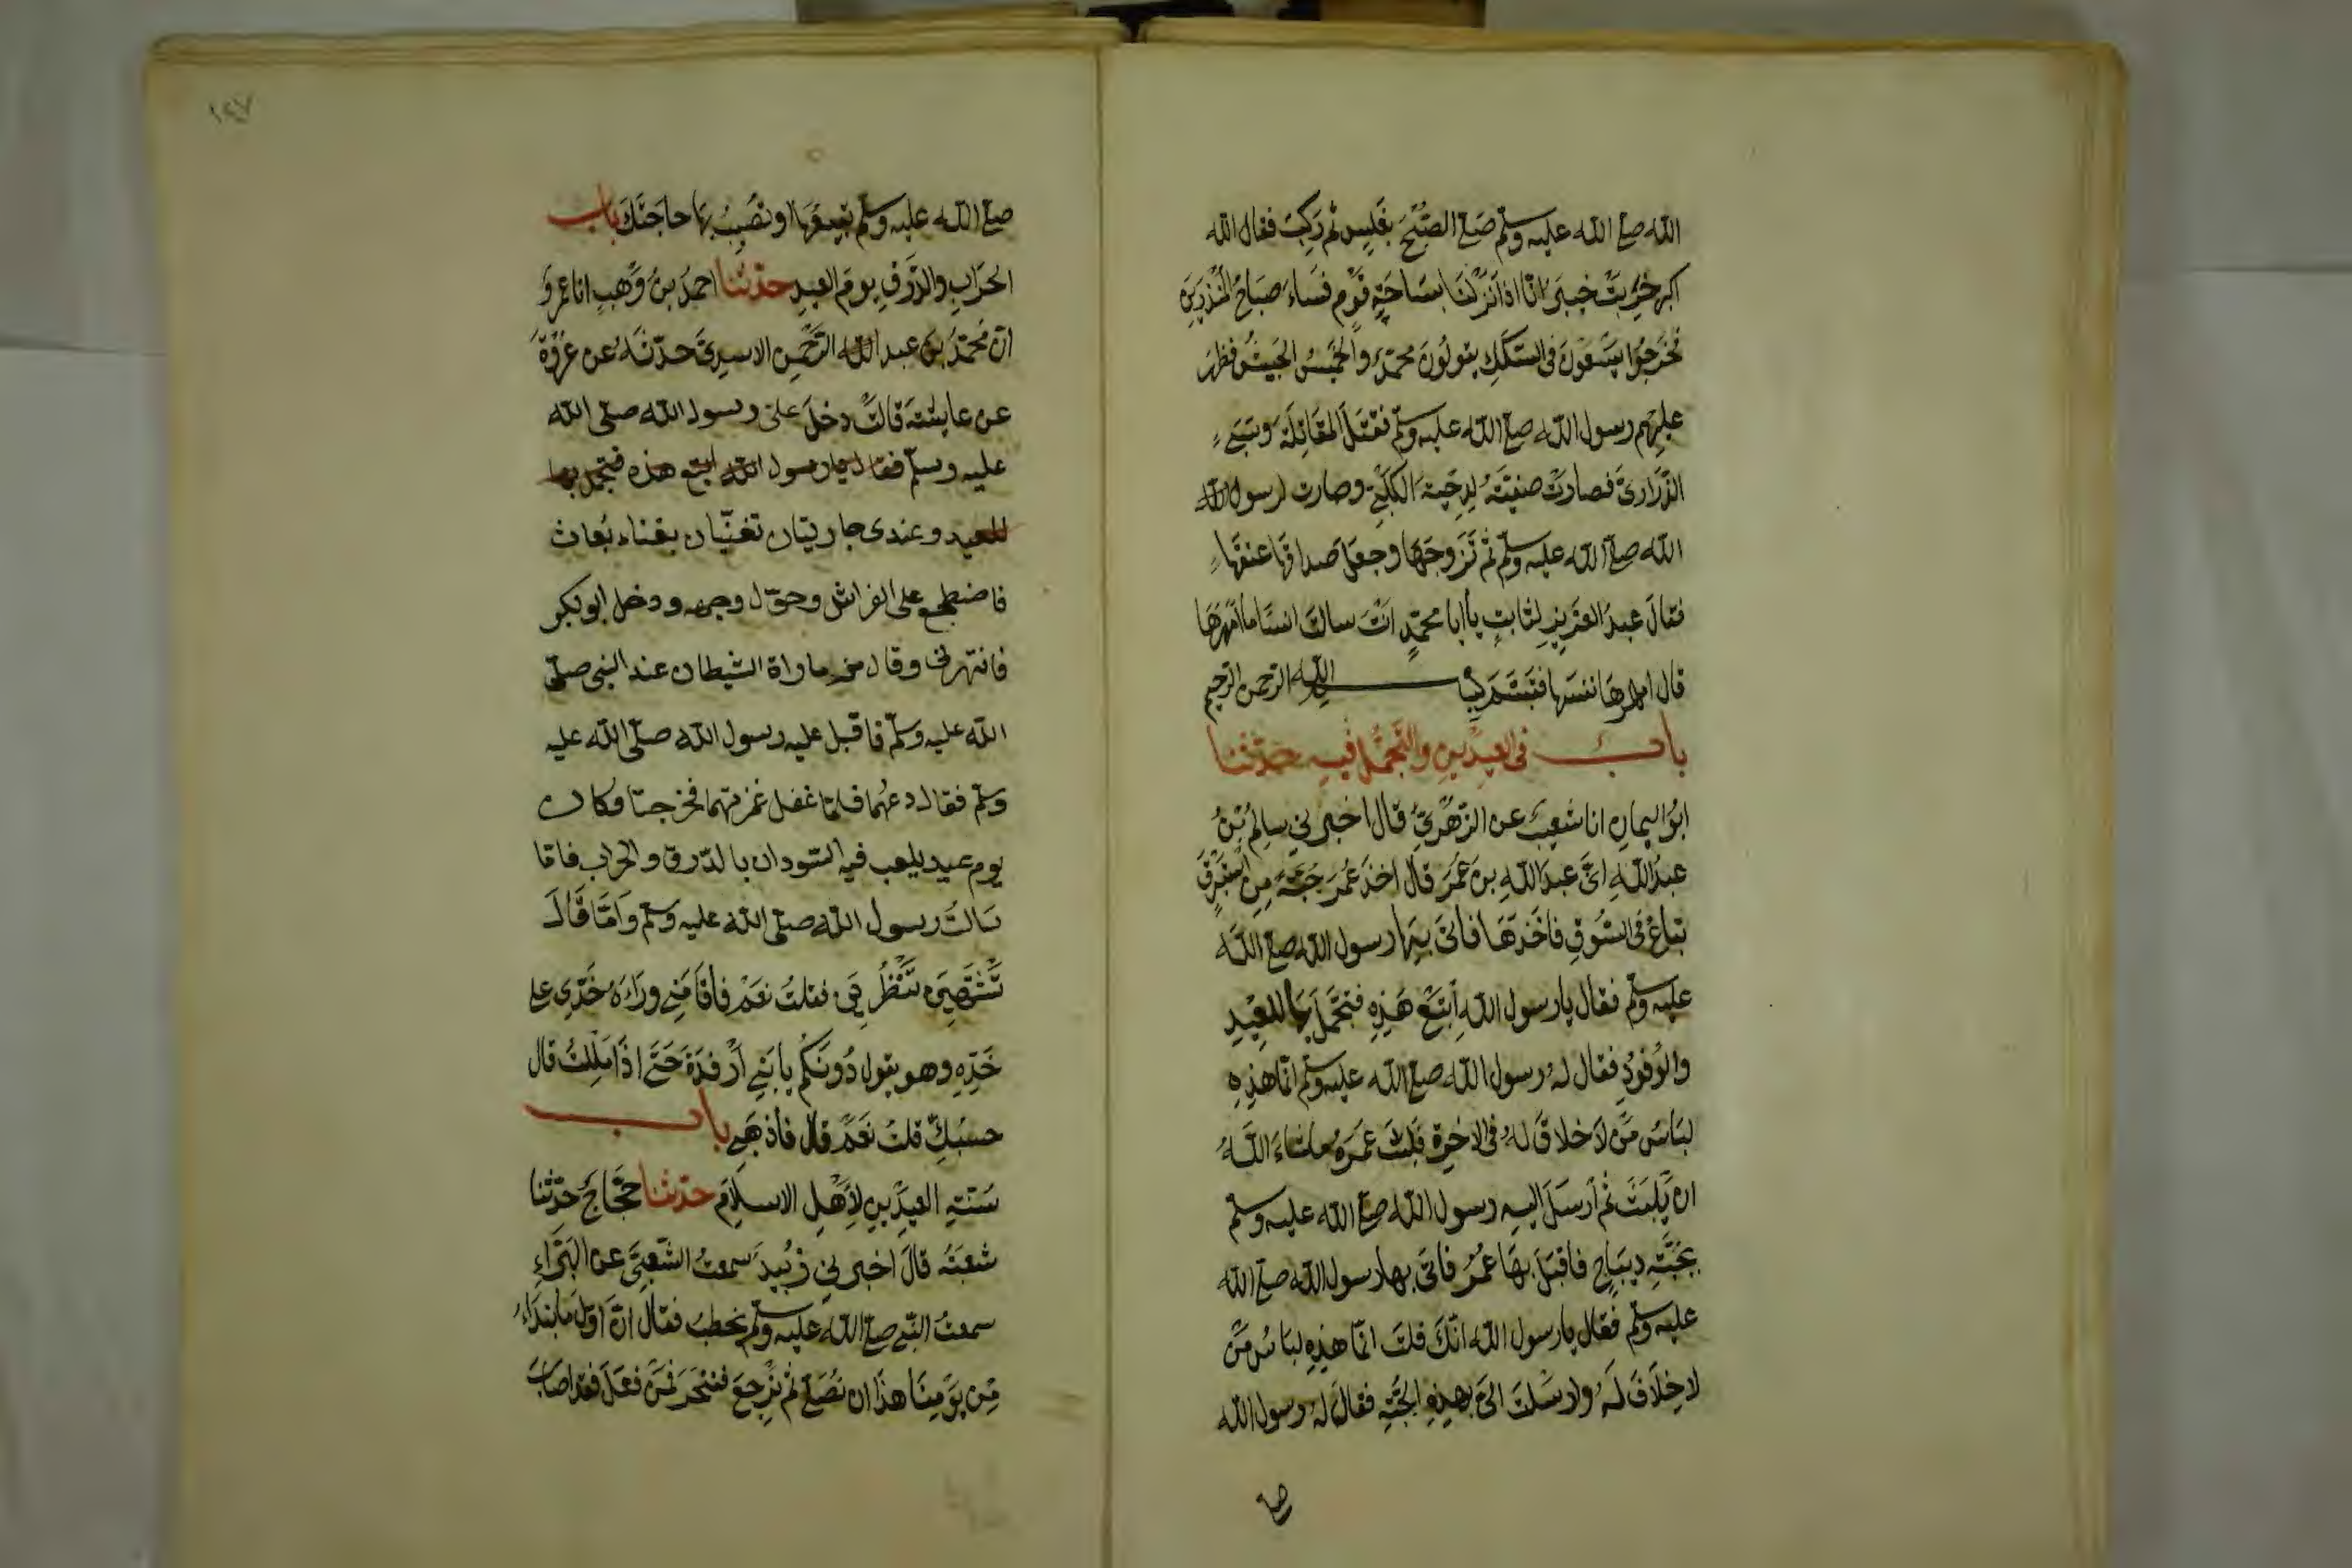 الله صلى الله عليه وسلم صلى الصبح بغلس ثم ركب فقال الله
اكبر خربت خيبر انا اذا نزلنا بساحة قوم فساء صباح المنذرين
فخرجوا يسعون في السكك يقولون محمد والخميس الجيش فظهر
عليهم رسول الله صلى الله عليه وسلم فقتل المقاتلة وسبى
الذراري فصارت صفية لدحية الكلبي وصارت لرسول الله
الله صلى الله عليه وسلم ثم تزوجها وجعل صداقها عتقها
فقال عبد العزيز لثابت يا ابا محمد انت سالت انسا ما امهرها
قال امهرها نفسها فتبسم بسم الله الرحمن الرحيم
باب في العيدين والتجمل فيه حدثنا
ابو اليمان انا شعيب عن الزهري قال اخبرني سالم بن
عبد الله ان عبد الله بن عمر قال اخذ عمر جبة من استبرق
تباع في السوق فاخذها فاتى بها رسول الله صلى الله
عليه وسلم فقال يا رسول الله ابتع هذه فتجمل بها للعيد
والوفود فقال له رسول الله صلى الله عليه وسلم انما هذه
لباس من لا خلاق له في الاخرة فلبث عمر ما شاء الله
ان يلبث ثم ارسل اليه رسول الله صلى الله عليه وسلم
بجبة ديباج فاقبل بها عمر فاتى بها رسول الله صلى الله
عليه وسلم فقال يا رسول الله انك قلت انما هذه لباس من
لا خلاق له وارسلت الي بهذه الجبة فقال له رسول الله
١٢٧
صلى الله عليه وسلم تبيعها او تصيب بها حاجتك باب
الحراب والدرق يوم العيد حدثنا احمد بن وهب انا عمرو
ان محمد بن عبد الله الرحمن الاسدي حدثه عن عروة
عن عايشة قالت دخل على رسول الله صلى الله
عليه وسلم فقال يا رسول الله ابتع هذه فتجمل بها
للعيد وعندي جاريتان تغنيان بغناء بعاث
فاضطجع على الفراش وحول وجهه ودخل ابو بكر
فانتهرني وقال مزماراة الشيطان عند النبي صلى
الله عليه وسلم فاقبل عليه رسول الله صلى الله عليه
وسلم فقال دعهما فلما غفل غمزتهما فخرجتا وكان
يوم عيد يلعب فيه السودان بالدرق والحراب فاما
سالت رسول الله صلى الله عليه وسلم واما قال
تشتهين تنظرين فقلت نعم فاقامني وراءه خدي على
خده وهو يقول دونكم يا بني ارفدة حتى اذا مللت قال
حسبك قلت نعم قال فاذهبي باب
سنة العيدين لاهل الاسلام حدثنا حجاج حدثنا
شعبة قال اخبرني زبيد سمعت الشعبي عن البراء
سمعت النبي صلى الله عليه وسلم يخطب فقال ان اول ما نبداء
من يومنا هذا ان نصلي ثم نرجع فننحر فمن فعل فقد اصاب